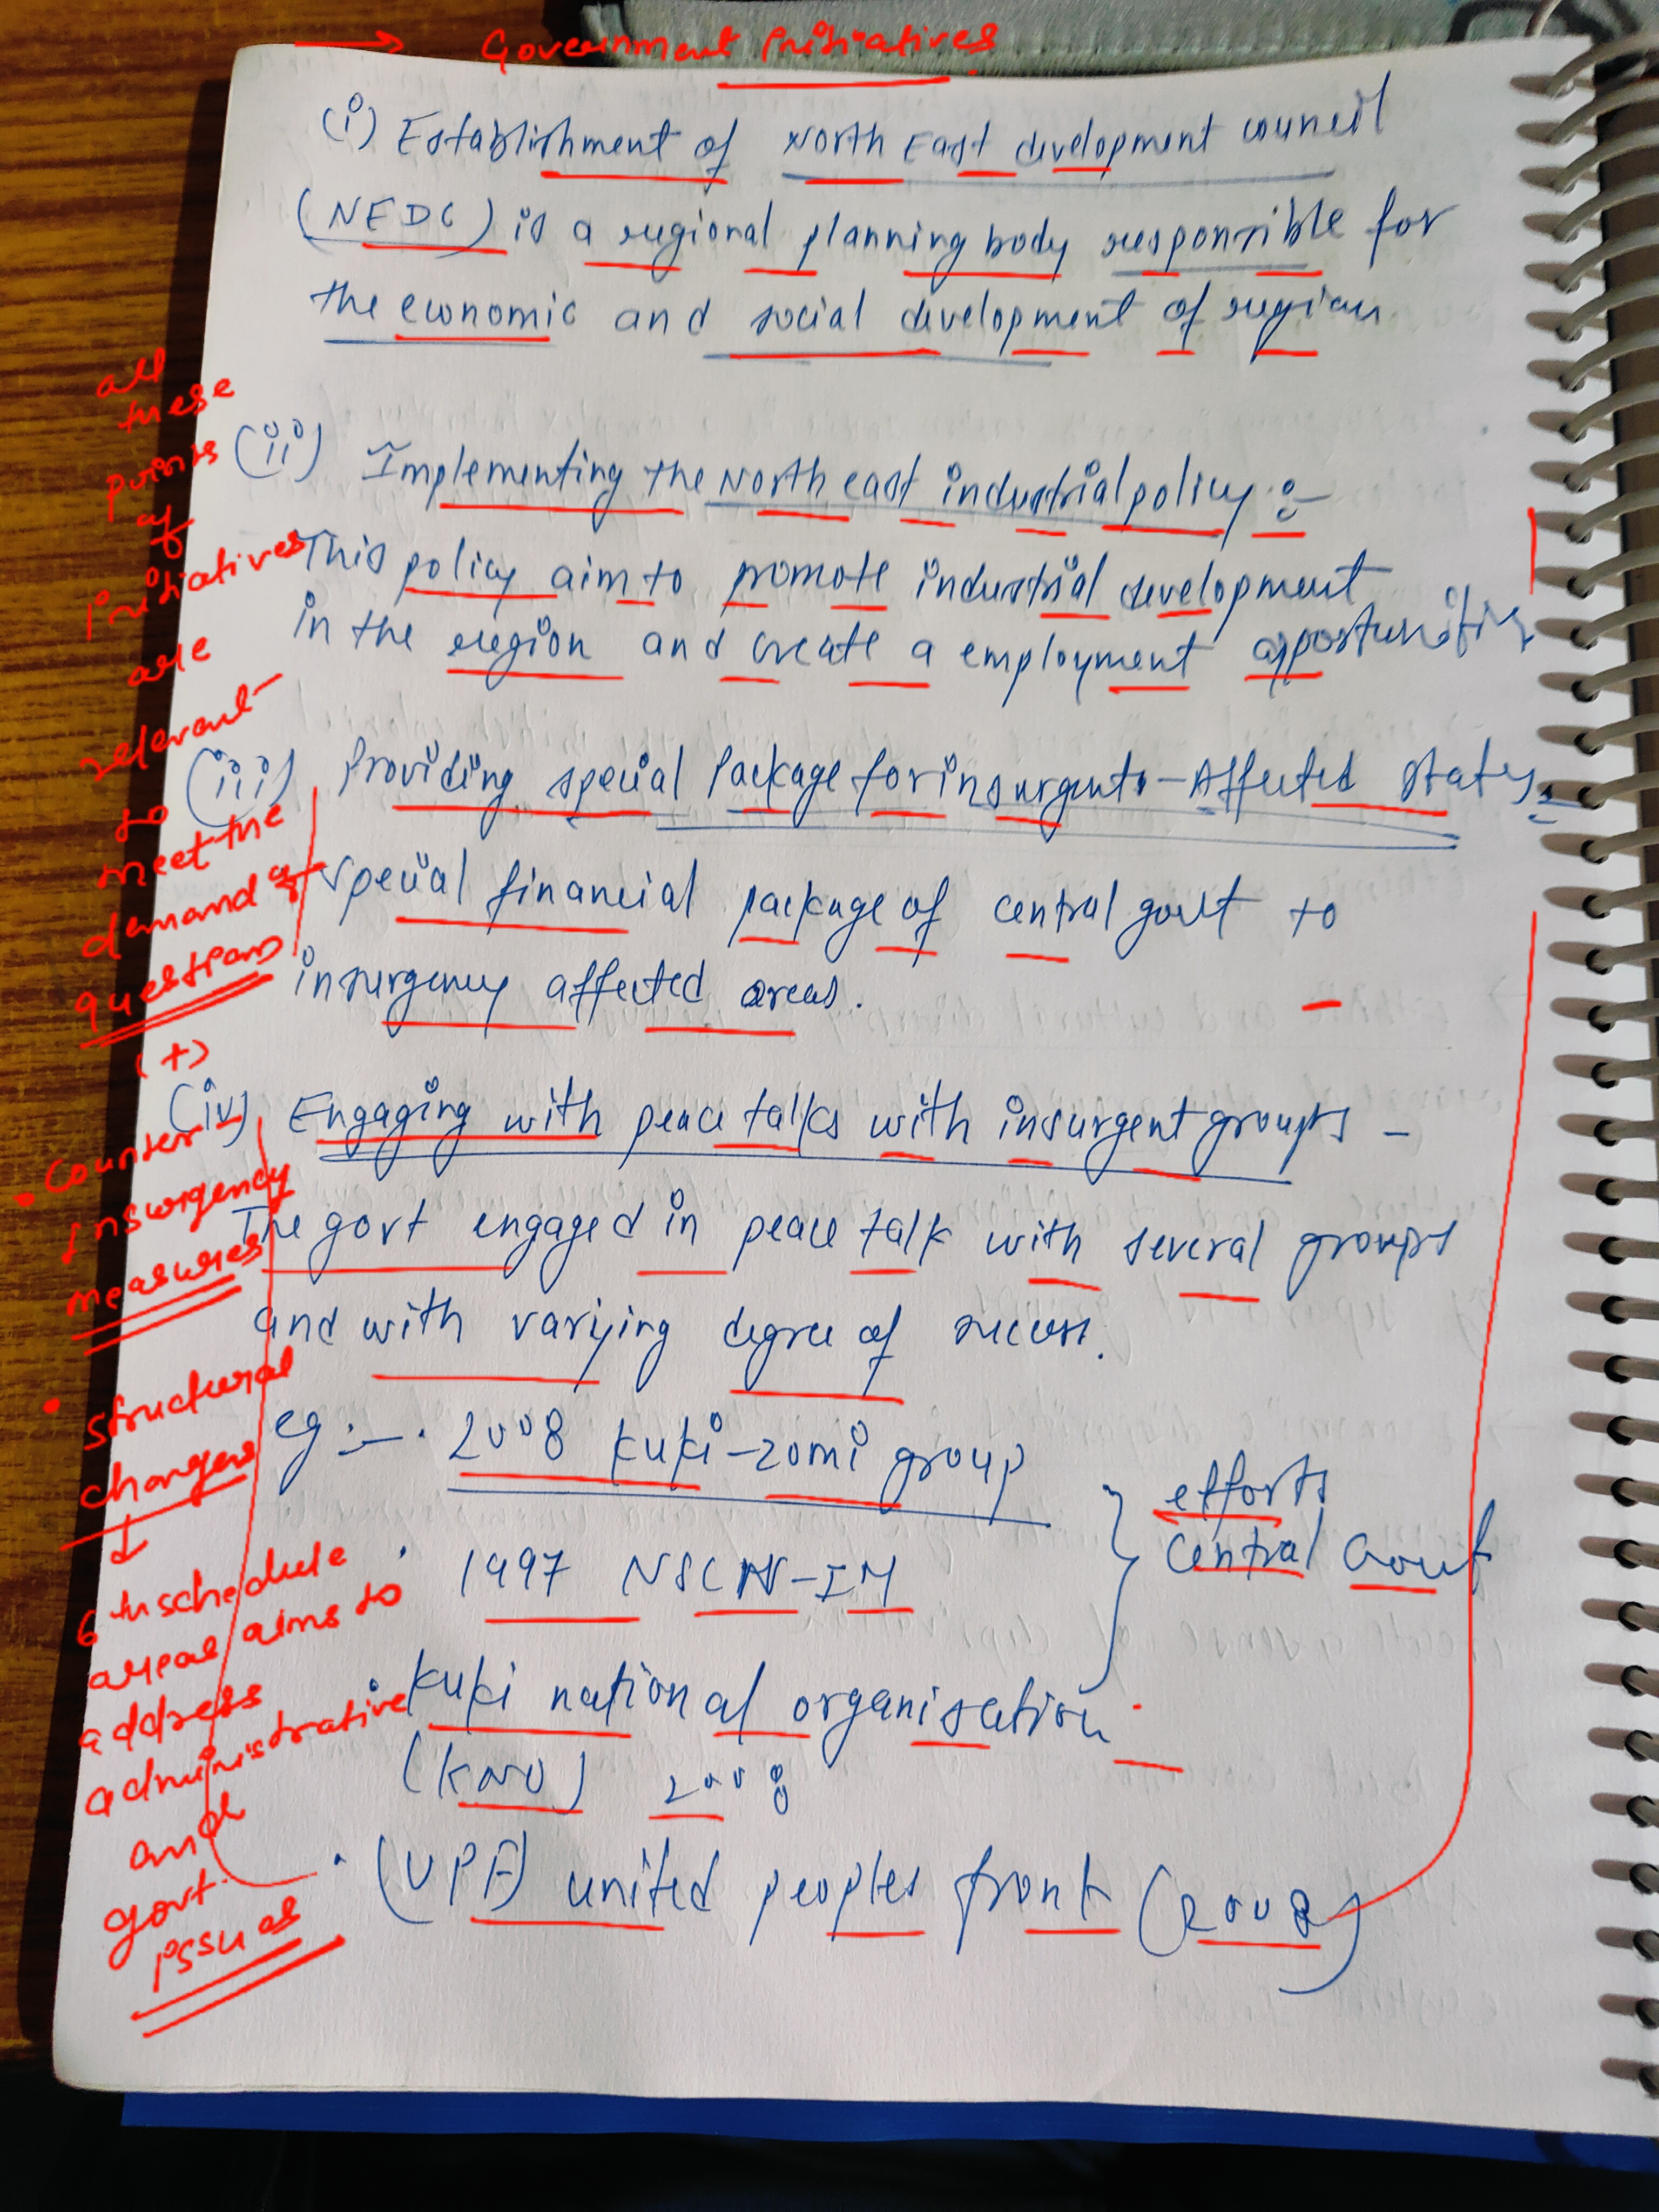 → Government Initiatives
(i) Establishment of North East development council
(NEDC) is a regional planning body responsible for
the economic and social development of region
(ii) Implementing the North east industrial policy :-
This policy aim to promote industrial development
in the region and create a employment opportunities
(iii) Providing special Package for insurgents-Affected states:
special financial package of central govt to
insurgency affected areas.
(iv) Engaging with peace talks with insurgent groups -
The govt engaged in peace talk with several groups
and with varying degree of success.
eg :- • 2008 kuki-zomi group
• 1997 NSCN-IM
efforts
Central Govt
• kuki national organisation
(KNO) 2008
• (UPF) united peoples front (2008)
all
these
points
of
initiatives
are
relevant
to
meet the
demand of
question
(+)
• Counter
insurgency
measures
• structural
changes
↓
6th schedule
areas aims to
address
administrative
and
govt.
issues